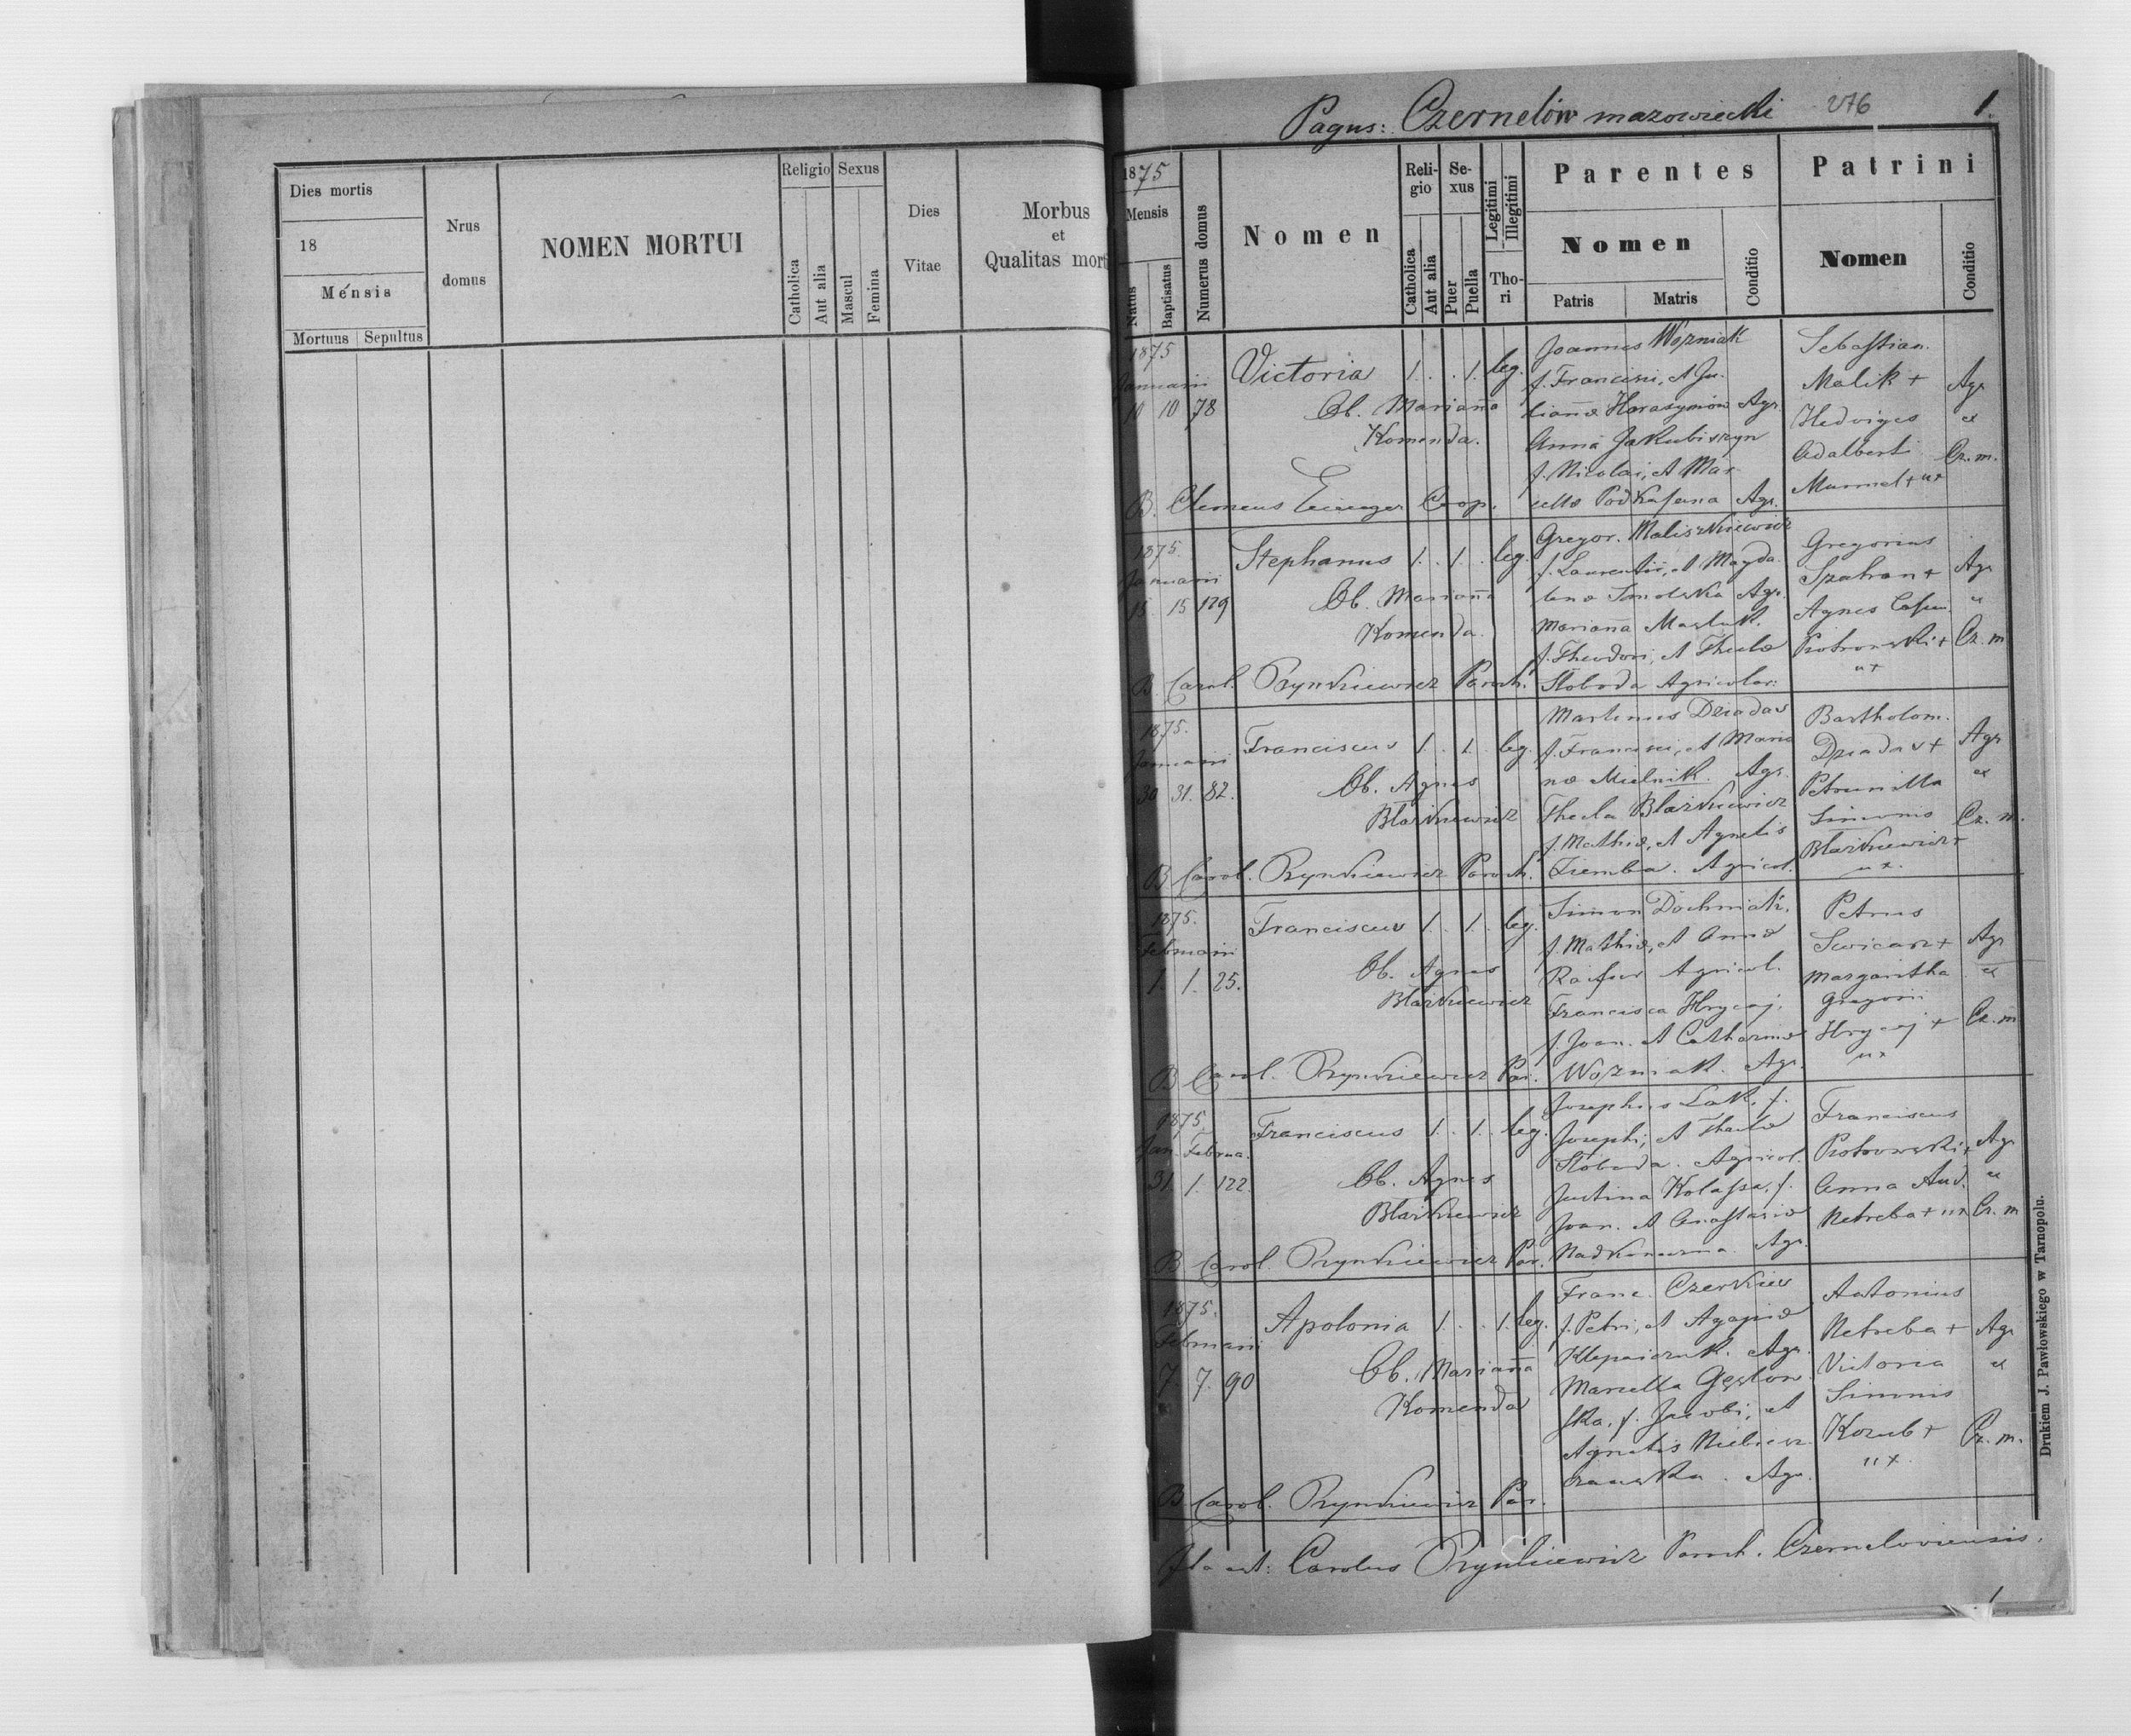 Dies mortis
18
Mensis
Mortuus Sepultus
Nrus
domus
NOMEN MORTUI
Religio
Catholica
Aut alia
Sexus
Mascul
Femina
Dies
Vitae
Morbus
et
Qualitas mort
Pagus: Czernelów mazowiecki 276 1.
1875
Mensis
Natus
Baptisatus
Numerus domus
Nomen
Reli-
gio
Catholica
Aut alia
Se-
xus
Puer
Puella
Legitimi
Illegitimi
Tho-
ri
Parentes
Nomen
Patris Matris
Conditio
Patrini
Nomen
Conditio
1875
Januarii
10 10 78
Victoria 1. . . 1. leg.
Ob. Marianna
Komenda.
B. Clemens Coop.
Joannes Wozniak
f. Francisci, et Ju-
lianæ Harasymów Agr.
Anna Jakubiszyn
f. Nicolai, et Mar
cellæ Agr.
Sebastian.
Malik + Agr
Hedviges "
Adalberti Cz. m.
Murmel + ux
1875.
Januarii
15 15 129
Stephanus 1. . 1. . leg.
Ob. Marianna
Komenda.
B. Carol. Prynkiewicz Paroch.
Gregor. Maliszkiewicz
f. Laurentii, et Magda
lenæ Smolska Agr.
Marianna
f. Theodori, et Theclæ
Sloboda Agricolar:
Gregorius
Szafran + Agr
Agnes "
Piotrowski + Cz. m
ux
1875.
Januarii
30 31. 82.
Franciscus 1. . 1. . leg.
Ob. Agnes
Blaikiewicz
B Carol. Prynkiewicz Paroch.
Martinus Dziadas
f. Francisci, et Maria
næ Mielnik. Agr.
Thecla Blaikiewicz
f. Mathiæ, et Agnetis
Ziemba. Agricol.
Bartholom.
Dziadas + Agr
Petrunilla "
Simonis Cz. m.
Blaikiewicz +
ux.
1875.
Februarii
1. 1. 25.
Franciscus 1. . 1. . leg.
Ob. Agnes
Blaikiewicz
B Carol. Prynkiewicz Par.
Simon Dachniak.
f. Mathiæ, et Annæ
Agricol.
Francisca Hrycaj.
f. Joan. et Catharinæ
Wozniak. Agr.
Petrus
Swicarz + Agr
Margaritha "
Gregorii
Hrycaj + Cz. m
ux
1875.
Jan. Februa.
31. 1. 122.
Franciscus 1. . 1. . leg.
Ob. Agnes
Blaikiewicz
B Carol. Prynkiewicz Par.
Josephus Lak. f.
Josephi, et Theclæ
Sloboda. Agricol.
Justina Kolassa, f.
Joan. et Anastasiæ
Agr.
Franciscus
Piotrowski + Agr
Anna And. "
Netreba + ux Cz. m
1875.
Februarii
7. 7. 90
Apolonia 1. . . 1. leg.
Ob. Marianna
Komenda
B Carol. Prynkiewicz Par.
Franc. Czerkies
f. Petri, et Agapiæ
Agr.
Marcella Gęslow
ska, f. Jacobi, et
Agnetis
Agr.
Antonius
Netreba + Agr
Victoria "
Simonis
Kozub + Cz. m.
ux.
Ita est: Carolus Prynkiewicz Paroch. Czerneloviensis.
1
Drukiem J. Pawłowskiego w Tarnopolu.